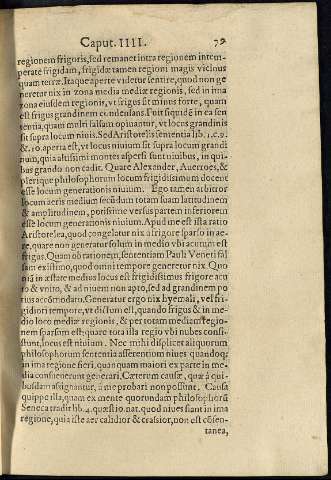 Caput. IIII. 79
regionem frigoris, sed remanet intra regionem intem-
perate frigidam, frigidæ tamen regioni magis vicinus
quam terræ. Itaque aperte videtur sentire, quod non ge
neretur nix in zona media mediæ regionis, sed in ima
zona eiusdem regionis, vt frigus sit minus forte, quam
est frigus grandinem condensans. Fuit siquidē in ea sen
tentia, quam multi falsum opinantur, vt locus grandinis
sit supra locum niuis. Sed Aristotelis sententia lib. 1. c. 9.
& 10. aperta est, vt locus niuium sit supra locum grandi
num, quia altissimi montes aspersi sunt niuibus, in qui-
bus grando non cadit. Quare Alexander, Auerroës, &
plerique philosophorum locum frigidissimum docent
esse locum generationis niuium. Ego tamen arbitror
locum aeris medium secūdum totam suam latitudinem
& amplitudinem, potissime versus partem inferiorem
esse locum generationis niuium. Apud me est illa ratio
Aristotelea, quod congelatur nix a frigore sparso in ae-
re, quare non generatur solum in medio vbi acutum est
frigus. Quam ob rationem, sententiam Pauli Veneti fal
sam existimo, quod omni tempore generetur nix. Quo
niā in æstate medius locus est frigidissimus frigore acu
to & vnito, & ad niuem non apto, sed ad grandinem po
tius accōmodato. Generatur ergo nix hyemali, vel fri-
gidiori tempore, vt dictum est, quando frigus & in me-
dio loco mediæ regionis, & per totam mediam regio-
nem sparsum est: quare tota illa regio vbi nubes consi-
stunt, locus est niuium. Nec mihi displicet aliquorum
philosophorum sententia asserentium niues quandoq;
in ima regione fieri, quanquam maiori ex parte in me-
dia consueuerint generari. Cæterum causæ, quæ à qui-
busdam assignantur, à me probari non possunt. Causa
quippe illa, quam ex mente quorundam philosophorū
Seneca tradit lib. 4. quæstio. nat. quod niues fiant in ima
regione, quia iste aer calidior & crassior, non est cōsen-
tanea,